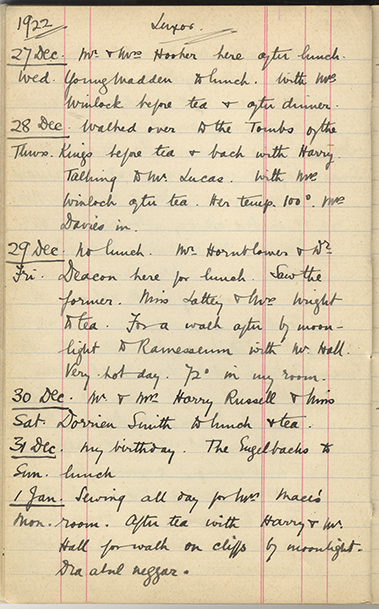 1922 Luxor.
27 Dec. Mr. & Mrs Hooker here after lunch.
Wed. Young Madden to lunch. With Mrs
Winlock before tea & after dinner.
28 Dec. Walked over to the Tombs of the
Thurs. Kings before tea & back with Harry.
Talking to Mr. Lucas. With Mrs
Winlock after tea. Her temp. 100°. Mrs
Davies in.
29 Dec. No lunch. Mr. Hornblower & Dr
Fri. Deacon here for lunch. Saw the
former. Miss Lattey & Mrs Wright
to tea. For a walk after by moon-
light to Ramesseum with Mr. Hall.
Very hot day. 72° in my room.
30 Dec. Mr. & Mrs Harry Russell & Miss
Sat. Dorrien Smith to lunch & tea.
31 Dec. My birthday. The Engelbachs to
Sun. lunch
1 Jan. Sewing all day for Mrs Mace's
Mon. room. After tea with Harry & Mr.
Hall for walk on cliffs by moonlight.
Dra abul neggar.